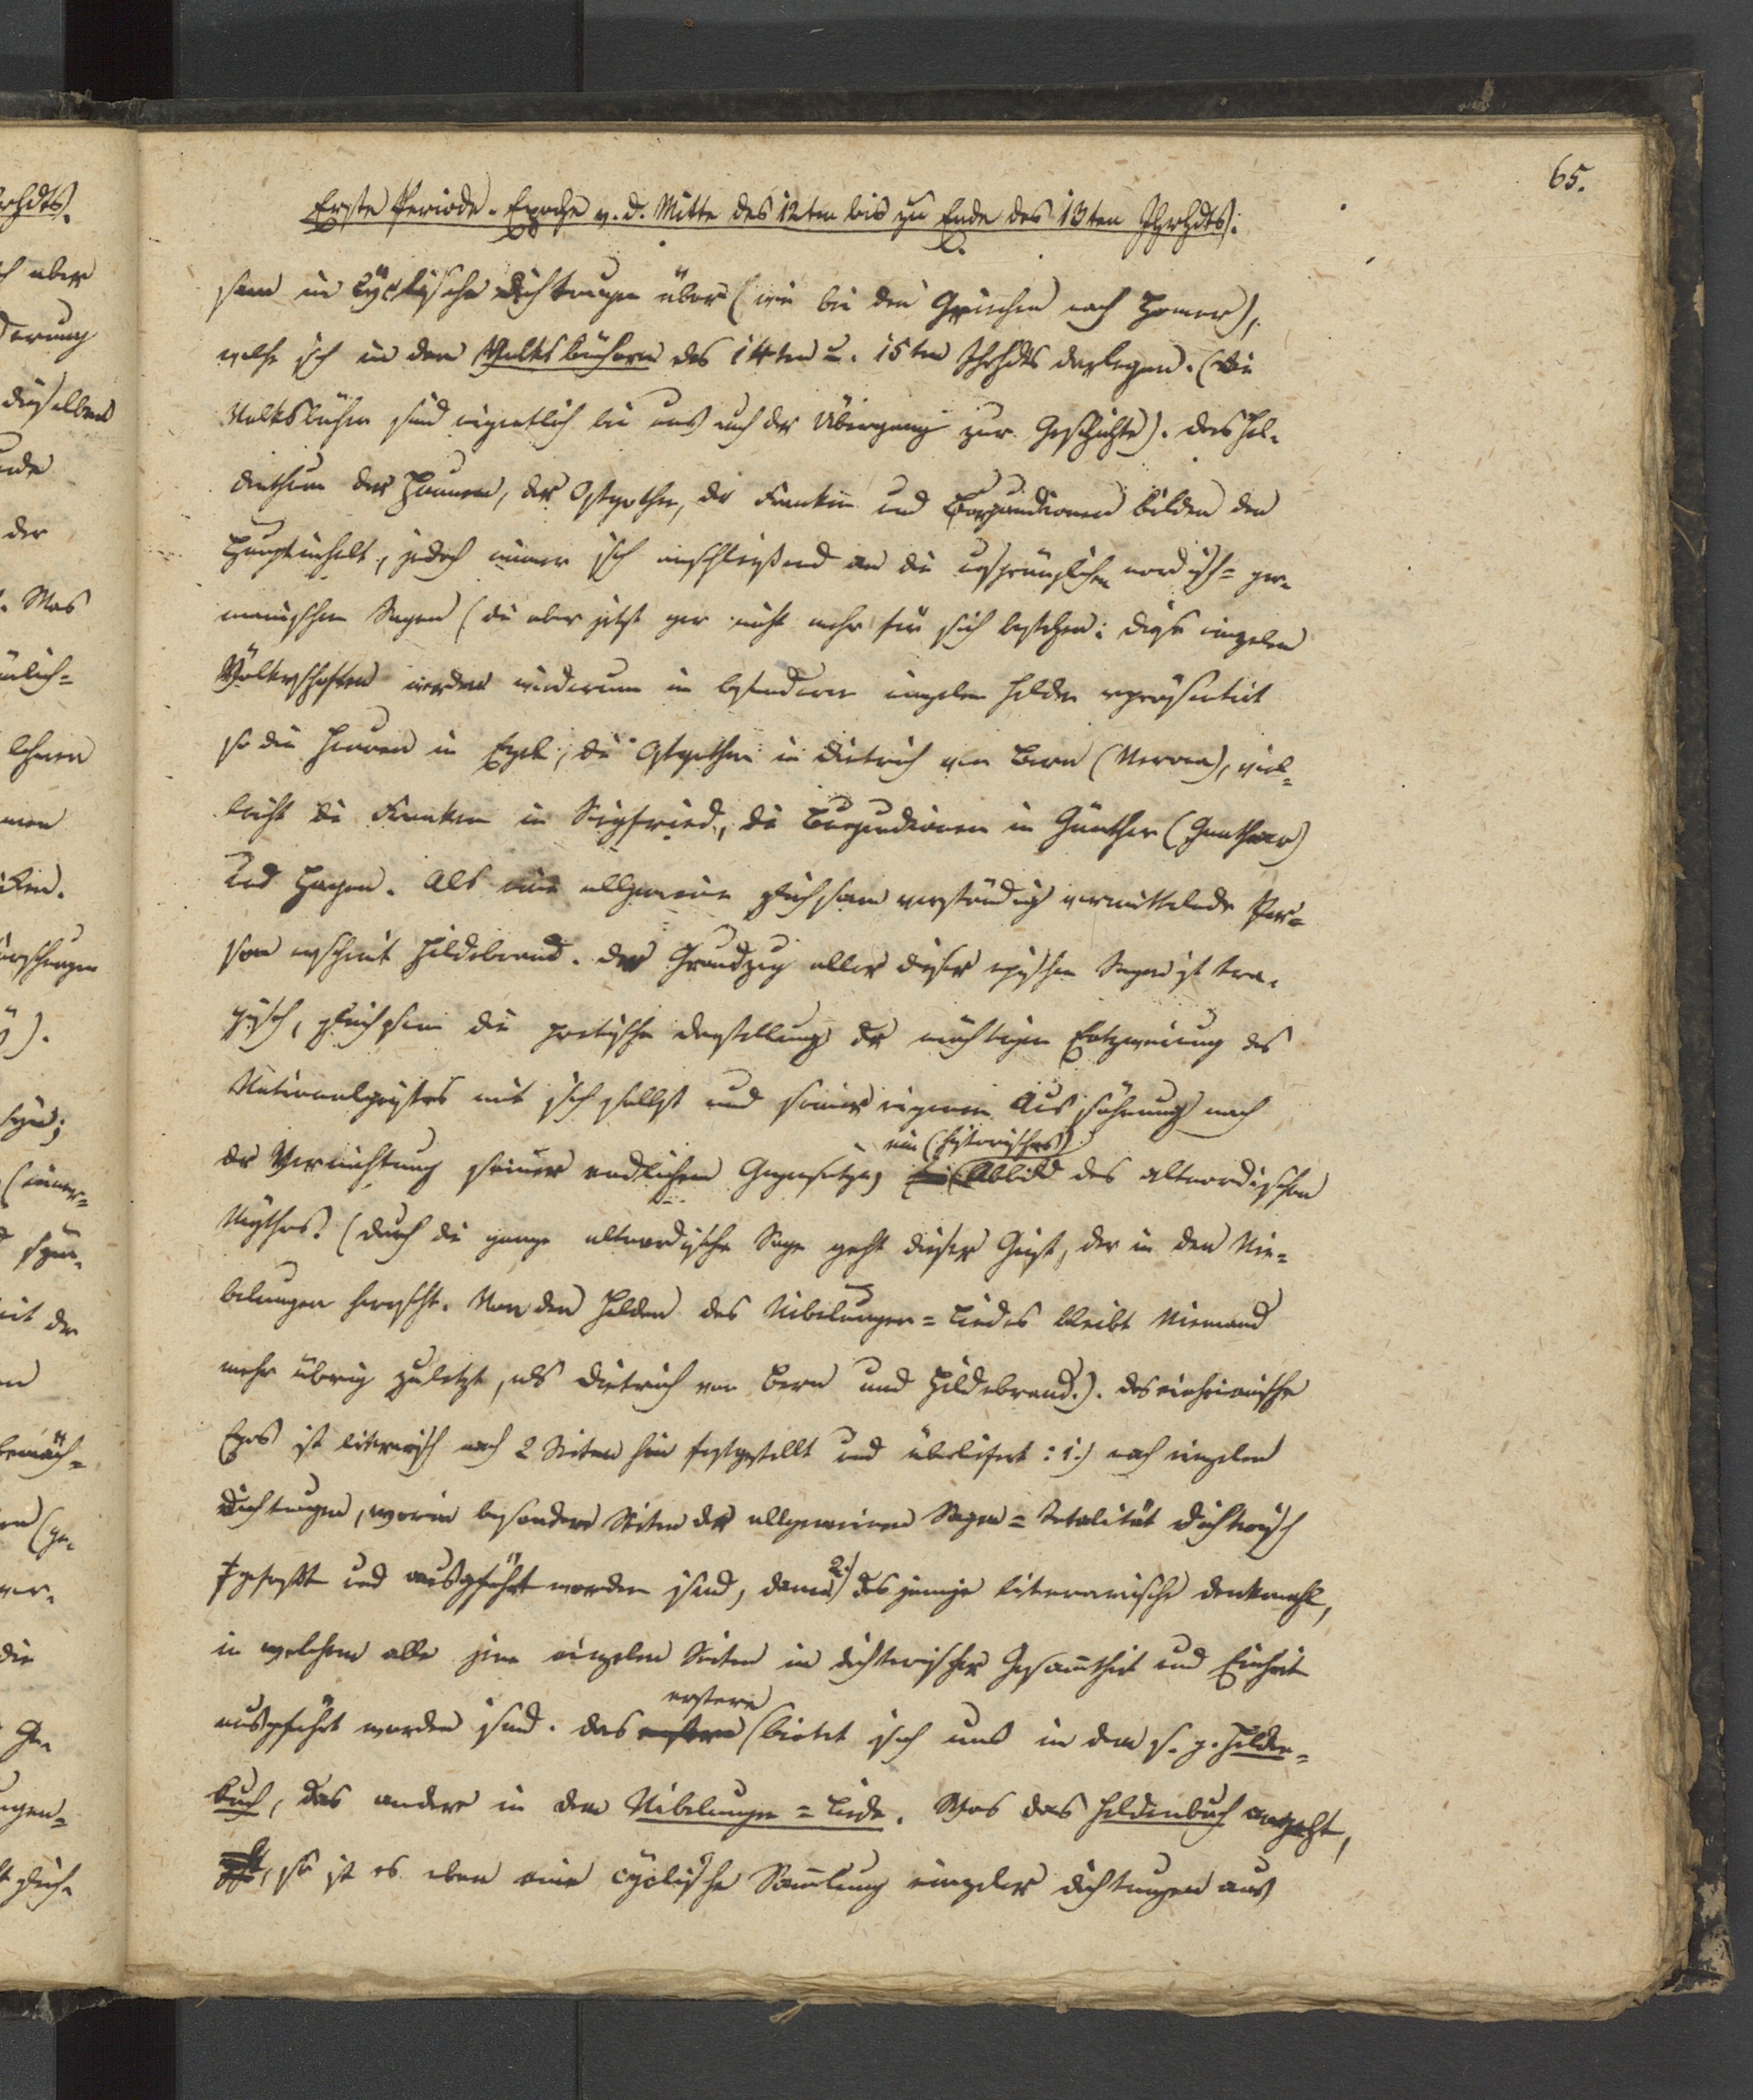 65.
Erste Periode. Epoche v. d. Mitte des 12ten bis zu Ende des 13ten Jhrhdts.
sam in cyclische Dichtungen über (wie bei den Griechen nach Homer),
welche sich in den Volksbüchern des 14ten u. 15ten Jhrhdts darlegen. (Die
Volksbücher sind eigentlich bei uns auch der Übergang zur Geschichte). Das Hel-
denthum der Hunnen, der Ostgothen, der Franken und Burgundionen bilden den
Hauptinhalt, jedoch immer sich anschließend an die ursprünglichen nordisch-ger-
manischen Sagen (die aber jetzt gar nicht mehr für sich bestehen: diese einzelnen
Völkerschaften werden wiederum in besonderen einzelnen Helden repräsentirt
so die Hunnen in Ezel, die Ostgothen in Dietrich von Bern (Verona), viel-
leicht die Franken in Siegfried, die Burgundionen in Günther (Gunther)
und Hagen. Als eine allgemeine gleichsam verständig vermittelnde Per-
son erscheint Hildebrand. Der Grundzug aller dieser epischen Sagen ist tra-
gisch, gleichsam die poetische Darstellung der mächtigen Entzweiung des
Nationalgeistes mit sich selbst und seiner eigenen Aussöhnung nach
der Vernichtung seiner endlichen Gegensätze, ein (historisches) Abbild des altnordischen
Mythos. (durch die ganze altnordische Sage geht dieser Geist, der in den Nie-
belungen herrscht. Von den Helden des Nibelungen-Liedes bleibt Niemand
mehr übrig zuletzt, als Dietrich von Bern und Hildebrand.). Das einheimische
Epos ist literarisch nach 2 Seiten hin festgestellt und überliefert: 1.) nach einzelnen
Dichtungen, worin besondere Seiten der allgemeinen Sagen-Totalität dichterisch
gefasst und ausgeführt worden sind, dann 2.) dasjenige literarische Denkmahl,
in welchem alle jene einzelnen Seiten in dichterischer Gesammtheit und Einheit
ausgeführt worden sind. Das erstere bietet sich uns in dem s. g. Helden-
buch, das andere in dem Nibelungen-Liede. Was das Heldenbuch angeht,
so ist es eben eine cyclische Sammlung einzelner Dichtungen aus